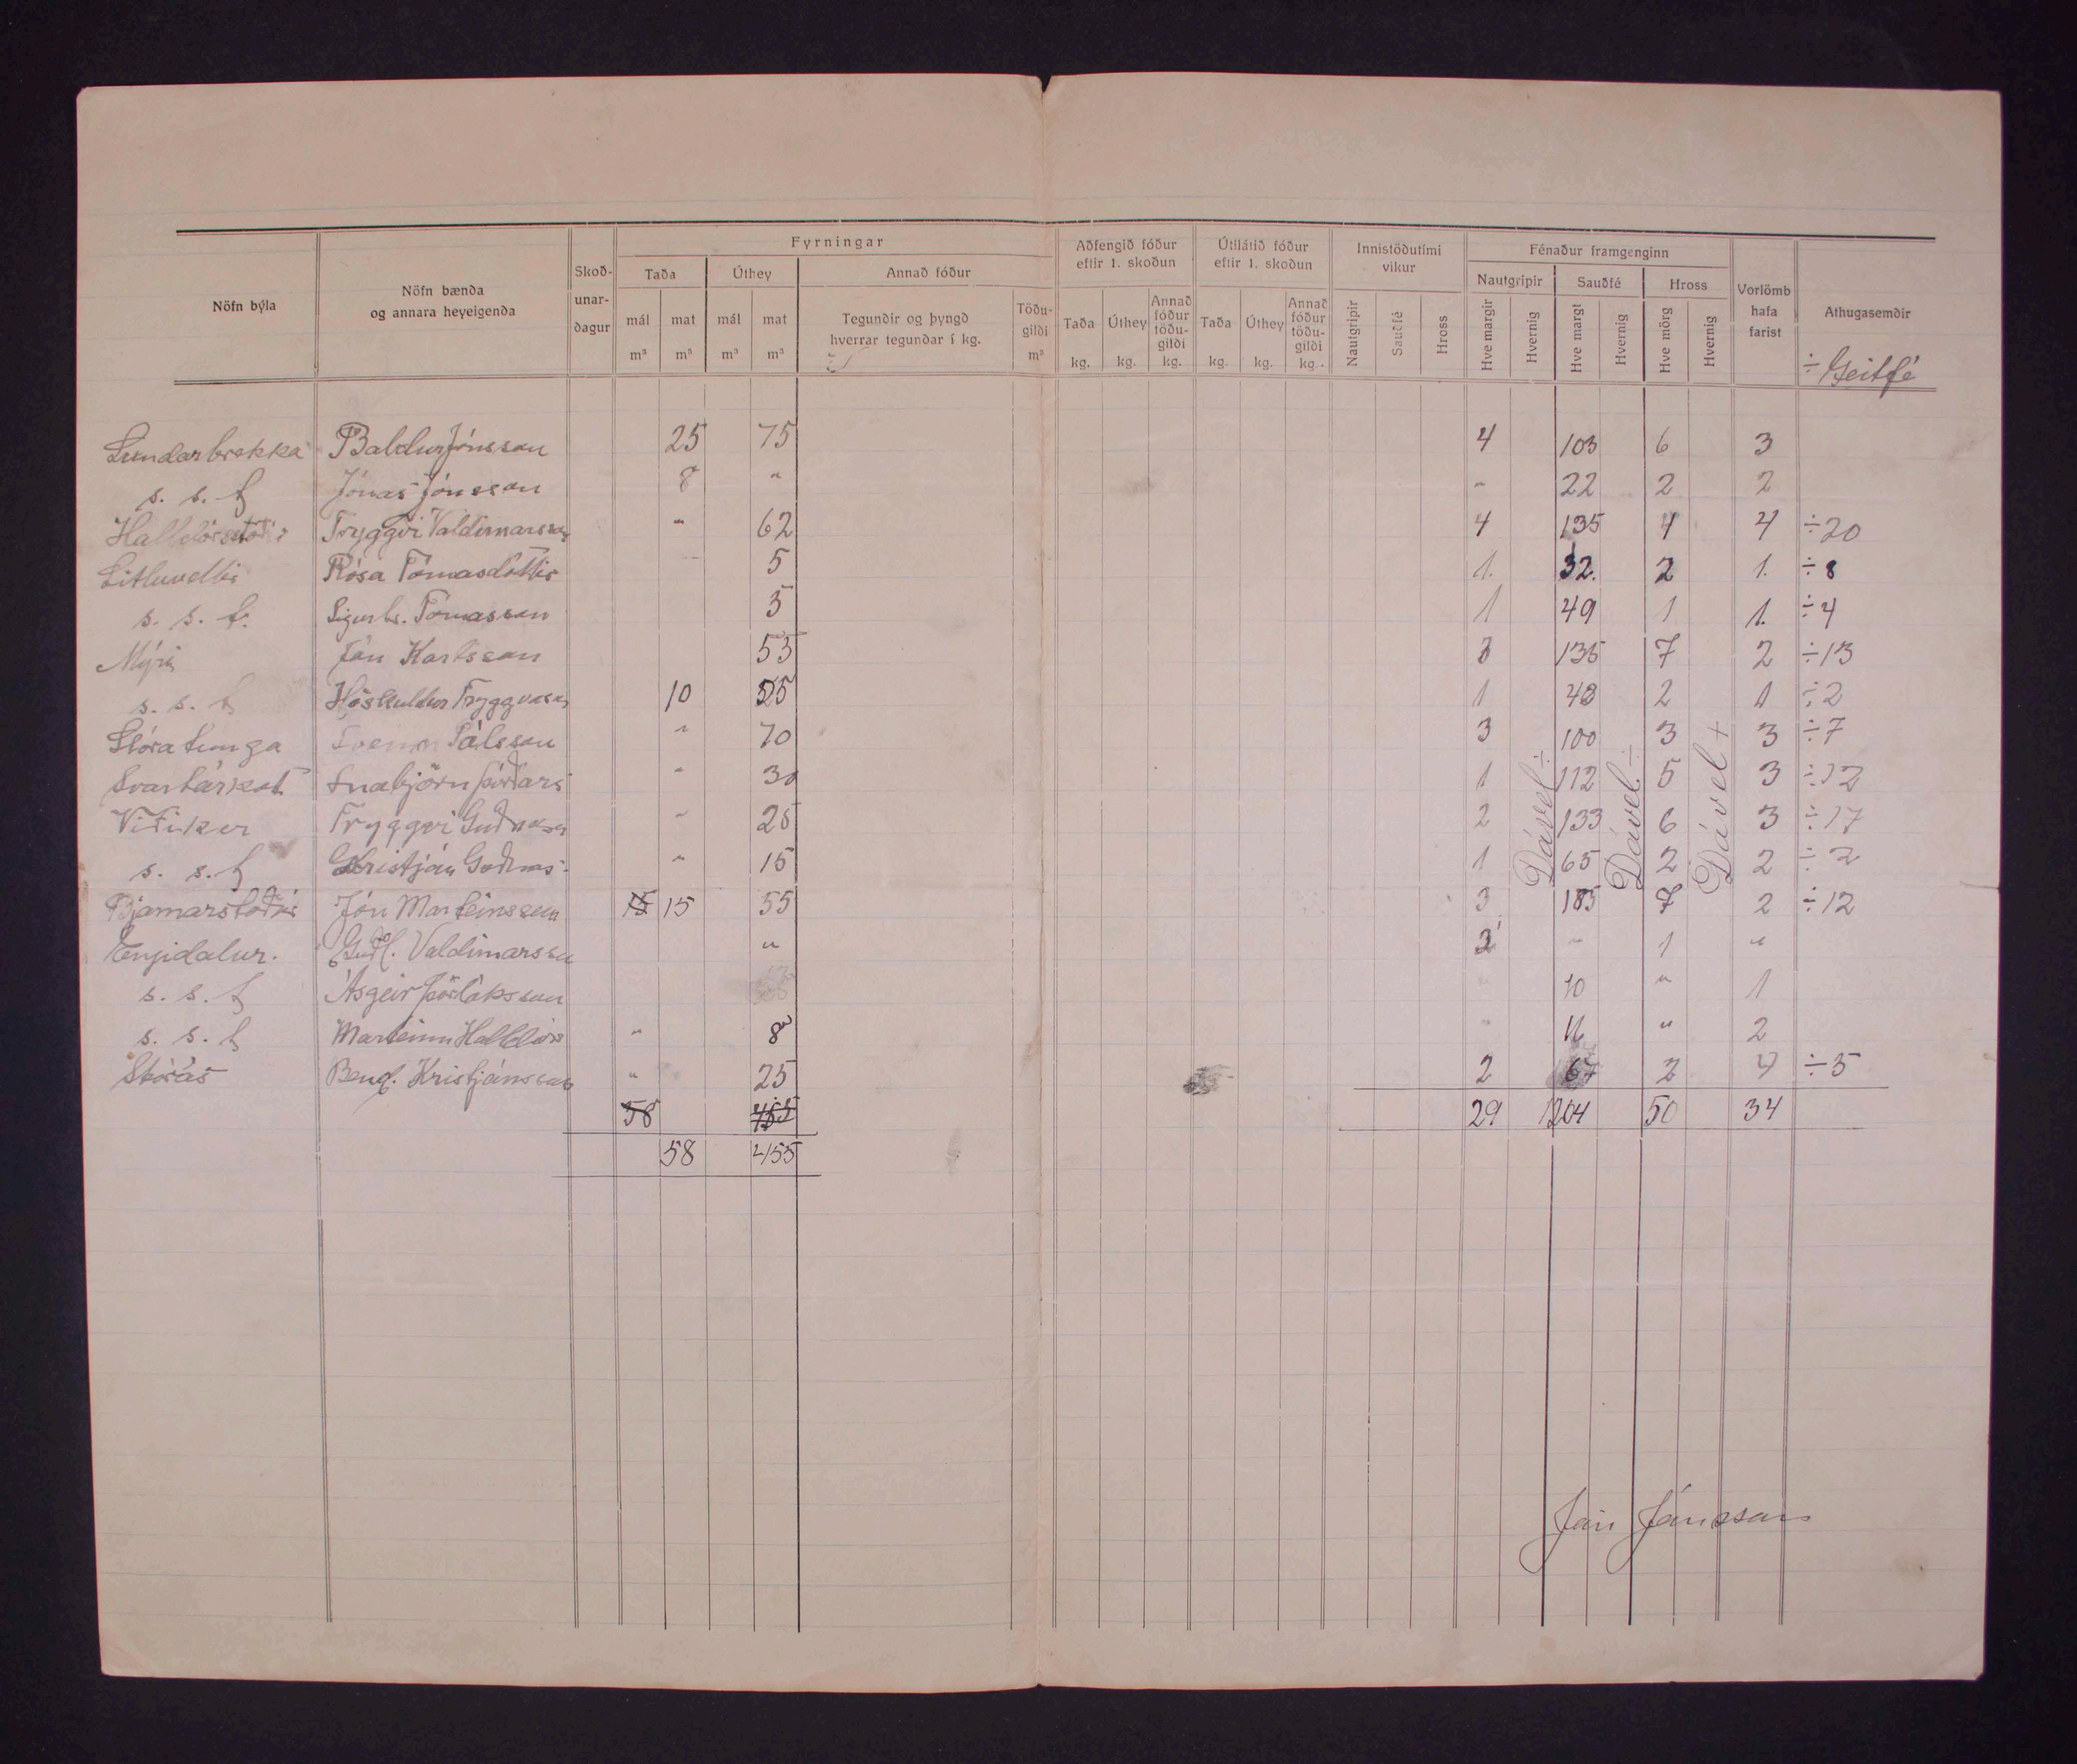 Fyrningar
Aðfengið fóður eftir 1. skoðun
Útilátið fóður eftir 1. skoðun
Innistöðutími vikur
Fénaður framgenginn
Nöfn býla
Nöfn bænda og annara heyeigenda
Skoð-unar-dagur
Taða Úthey Annað fóður
Nautgripir Sauðfé Hross
Vorlömb hafa farist
Athugasemdir
mál m³ mat m³ mál m³ mat m³
Tegundir og þyngd hverrar tegundar í kg.
Töðu-gildi m³
Taða kg. Úthey kg. Annað fóður töðu-gildi kg.
Taða kg. Úthey kg. Annað fóður töðu-gildi kg.
Nautgripir Sauðfé Hross
Hve margir Hvernig Hve margt Hvernig Hve mörg Hvernig
÷ Geitfé
Lundarbrekka Baldur Jónsson 25 75 4 103 6 3
s. s. t Jónas Jónsson 8 " - 22 2 2
Halldórsstaðir Tryggvi Valdimarsson " 62 4 135 4 4 ÷20
Litluvellir Rósa Tómasdóttir 5 1. 32. 2 1. ÷8
s. s. t. Sigurb. Tómasson 5 1 49 1 1. ÷4
Mýri Jón Karlsson 53 3 135 7 2 ÷13
s. s. t Höskuldur Tryggvason 10 25 1 48 2 1 ÷2
Stóratunga Pálsson " 70 3 100 3 3 ÷7
Svartárkot Snæbjörn Þórðars " 30 1 112 5 3 ÷12
Víðiker Tryggvi Guðnason " 25 2 133 6 3 ÷17
s. s. t Kristján Guðnas " 15 1 65 2 2 ÷2
Bjarnarstaðir Jón Marteinsson 15 15 55 3 185 7 2 ÷12
Engidalur. Guðl. Valdimarsson " 2 - 1 "
s. s. t Ásgeir Þorláksson 10 " 1
s. s. t Marteinn Halldórs " 8 " 2
Stórás Bened. Kristjánsson " 25 2 67 2 4 ÷5
Dável ÷ Dável ÷ Dável +
58 455 29 1204 50 34
58 455
Jón Jónsson